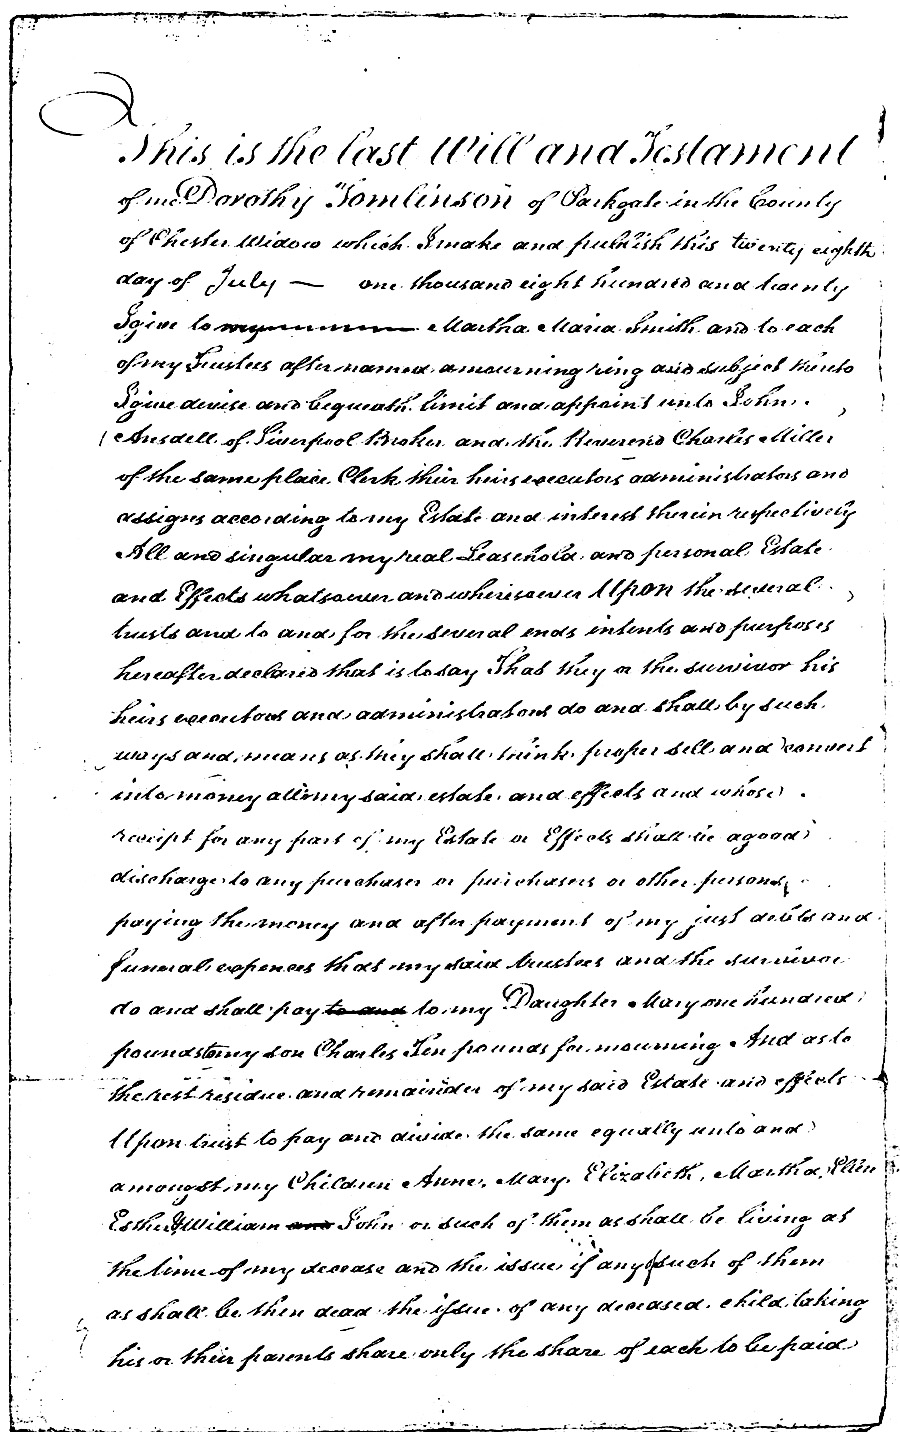 This is the last Will and Testament
of me Dorothy Tomlinson of Parkgate in the County
of Chester Widow which I make and publish this twenty eighth
day of July — one thousand eight hundred and twenty
I give to Martha Maria Smith and to each
of my Trustees after named a mourning ring and subject thereto
I give devise and bequeath limit and appoint unto John
Ansdell of Liverpool Broker and the Reverend Charles Miller
of the same place Clerk their heirs executors administrators and
assigns according to my Estate and interest therein respectively
All and singular my real Leasehold and personal Estate
and Effects whatsoever and wheresoever Upon the several
trusts and to and for the several ends intents and purposes
hereafter declared that is to say That they or the survivor his
heirs executors and administrators do and shall by such
ways and means as they shall think proper sell and convert
into money all my said estate and effects and whose
receipt for any part of my Estate or Effects shall be a good
discharge to any purchaser or purchasers or other persons
paying the money and after payment of my just debts and
funeral expences that my said trustees and the survivor
do and shall pay to and to my Daughter Mary one hundred
pounds to my son Charles Ten pounds for mourning And as to
the rest residue and remainder of my said Estate and effects
Upon trust to pay and divide the same equally unto and
amongst my Children Anne, Mary, Elizabeth, Martha, Ellen
Esther & William and John or such of them as shall be living at
the time of my decease and the issue if any of such of them
as shall be then dead the issue of any deceased child taking
his or their parents share only the share of each to be paid